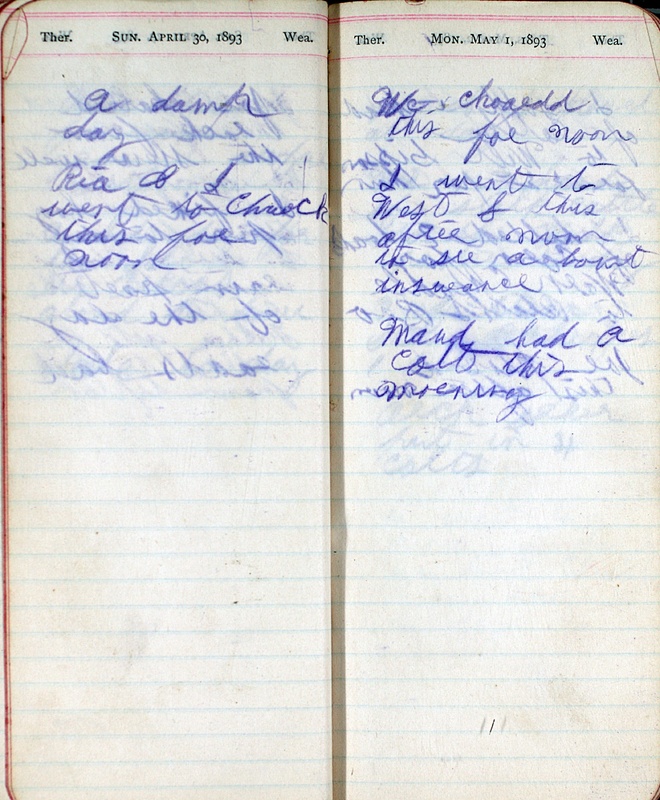 Ther. SUN. APRIL 30, 1893 Wea.
a damp
day
Ria & I
went to Chuech
this foe
noon
Ther. MON. MAY 1, 1893 Wea.
We choaedd
this foe noon
I went to
West & this
aftee noon
to see a bout
insueance
Maud had a
Colt this
moening